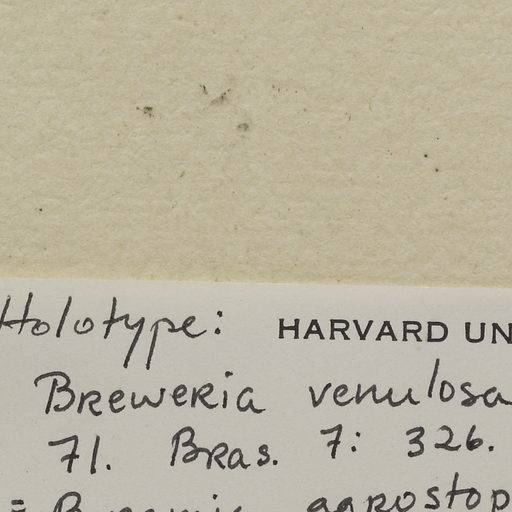 Holotype: HARVARD UN
Breweria venulosa
71. Bras. 7: 326.
= agrostop